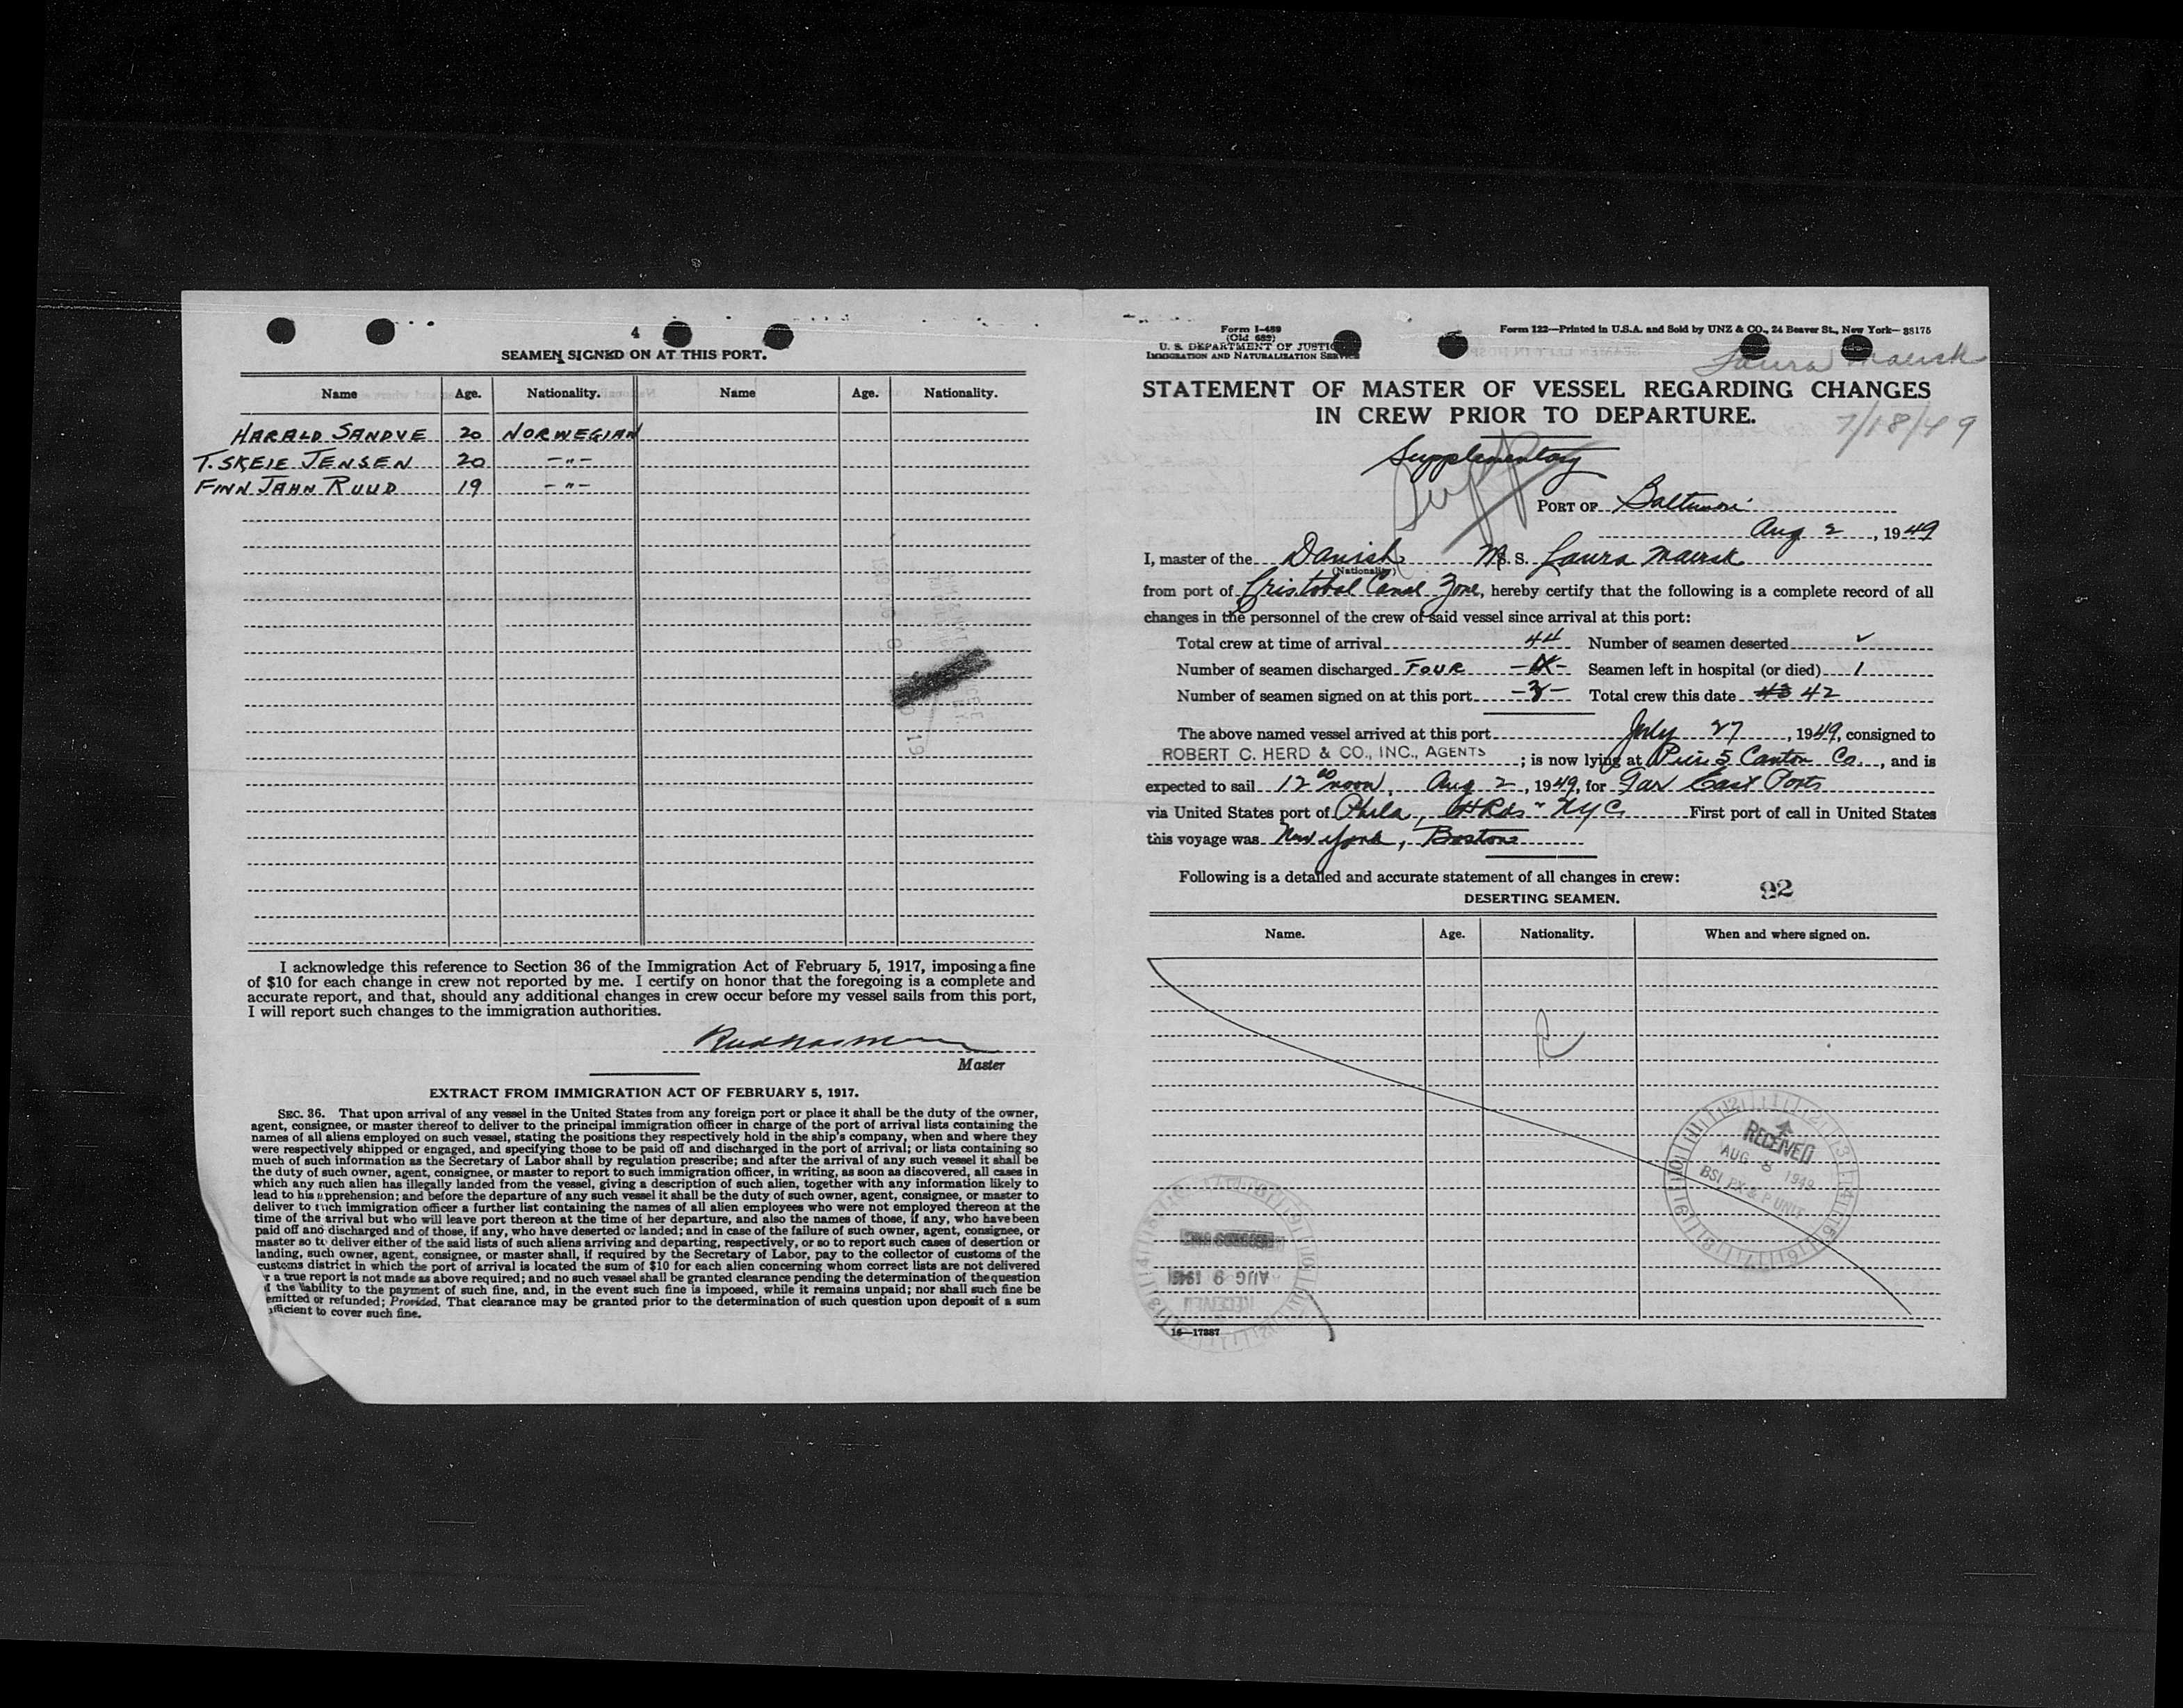 4
SEAMEN SIGNED ON AT THIS PORT.
Name Age. Nationality. Name Age. Nationality.
HARALD SANDVE 20 NORWEGIAN
T. SKEIE JENSEN 20 -"-
FINN JAHN RUUD 19 -"-
I acknowledge this reference to Section 36 of the Immigration Act of February 5, 1917, imposing a fine
of $10 for each change in crew not reported by me. I certify on honor that the foregoing is a complete and
accurate report, and that, should any additional changes in crew occur before my vessel sails from this port,
I will report such changes to the immigration authorities.
Master
EXTRACT FROM IMMIGRATION ACT OF FEBRUARY 5, 1917.
SEC. 36. That upon arrival of any vessel in the United States from any foreign port or place it shall be the duty of the owner,
agent, consignee, or master thereof to deliver to the principal immigration officer in charge of the port of arrival lists containing the
names of all aliens employed on such vessel, stating the positions they respectively hold in the ship's company, when and where they
were respectively shipped or engaged, and specifying those to be paid off and discharged in the port of arrival; or lists containing so
much of such information as the Secretary of Labor shall by regulation prescribe; and after the arrival of any such vessel it shall be
the duty of such owner, agent, consignee, or master to report to such immigration officer, in writing, as soon as discovered, all cases in
which any such alien has illegally landed from the vessel, giving a description of such alien, together with any information likely to
lead to his apprehension; and before the departure of any such vessel it shall be the duty of such owner, agent, consignee, or master to
deliver to such immigration officer a further list containing the names of all alien employees who were not employed thereon at the
time of the arrival but who will leave port thereon at the time of her departure, and also the names of those, if any, who have been
paid off and discharged and of those, if any, who have deserted or landed; and in case of the failure of such owner, agent, consignee, or
master so to deliver either of the said lists of such aliens arriving and departing, respectively, or so to report such cases of desertion or
landing, such owner, agent, consignee, or master shall, if required by the Secretary of Labor, pay to the collector of customs of the
customs district in which the port of arrival is located the sum of $10 for each alien concerning whom correct lists are not delivered
r a true report is not made as above required; and no such vessel shall be granted clearance pending the determination of the question
f the liability to the payment of such fine, and, in the event such fine is imposed, while it remains unpaid; nor shall such fine be
emitted or refunded; Provided, That clearance may be granted prior to the determination of such question upon deposit of a sum
ufficient to cover such fine.
Form I-489
(Old 689)
U. S. DEPARTMENT OF JUSTIC
IMMIGRATION AND NATURALIZATION SERVICE
Form 122—Printed in U.S.A. and Sold by UNZ & CO., 24 Beaver St., New York—38175
Laura Maersk
STATEMENT OF MASTER OF VESSEL REGARDING CHANGES
IN CREW PRIOR TO DEPARTURE.
7/18/49
Supplementary
Supp
PORT OF Baltimore
Aug 2, 1949
I, master of the Danish M.S. Laura Maersk
(Nationality)
from port of Cristobal Canal Zone, hereby certify that the following is a complete record of all
changes in the personnel of the crew of said vessel since arrival at this port:
Total crew at time of arrival 44 Number of seamen deserted ✓
Number of seamen discharged FOUR -4- Seamen left in hospital (or died) 1
Number of seamen signed on at this port -3- Total crew this date 43 42
The above named vessel arrived at this port July 27, 1949, consigned to
ROBERT C. HERD & CO., INC., AGENTS; is now lying at Pier 5 Canton Co., and is
expected to sail 12 00 noon, Aug 2, 1949, for Far East Ports
via United States port of Phila, H Rds - NYC First port of call in United States
this voyage was New York, Boston
Following is a detailed and accurate statement of all changes in crew:
92
DESERTING SEAMEN.
Name. Age. Nationality. When and where signed on.
R
RECEIVED
AUG 8 1949
BSI EX & P UNIT
AUG 9 1949
RECEIVED
16—17887